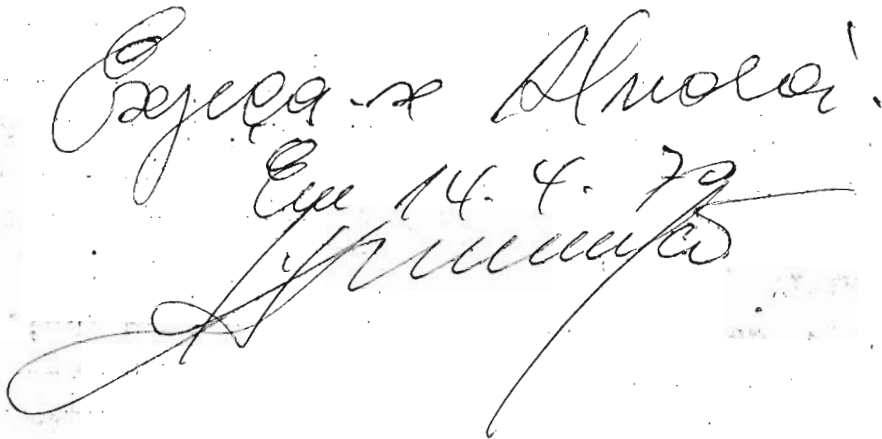 Expeça-se Alvará.
Em 14.4.70